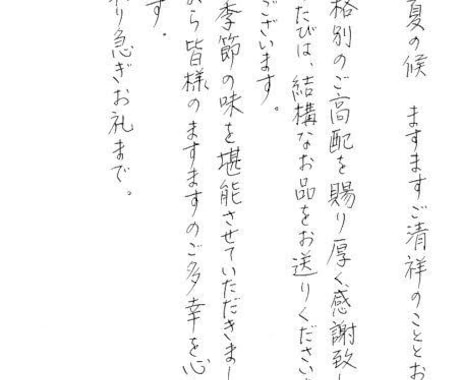 夏の候　ますますご清祥のこととお
格別のご高配を賜り厚く感謝致し
たびは、結構なお品をお送りくださいま
ございます。
季節の味を堪能させていただきまし
す。
ら皆様のますますのご多幸を心
り急ぎお礼まで。